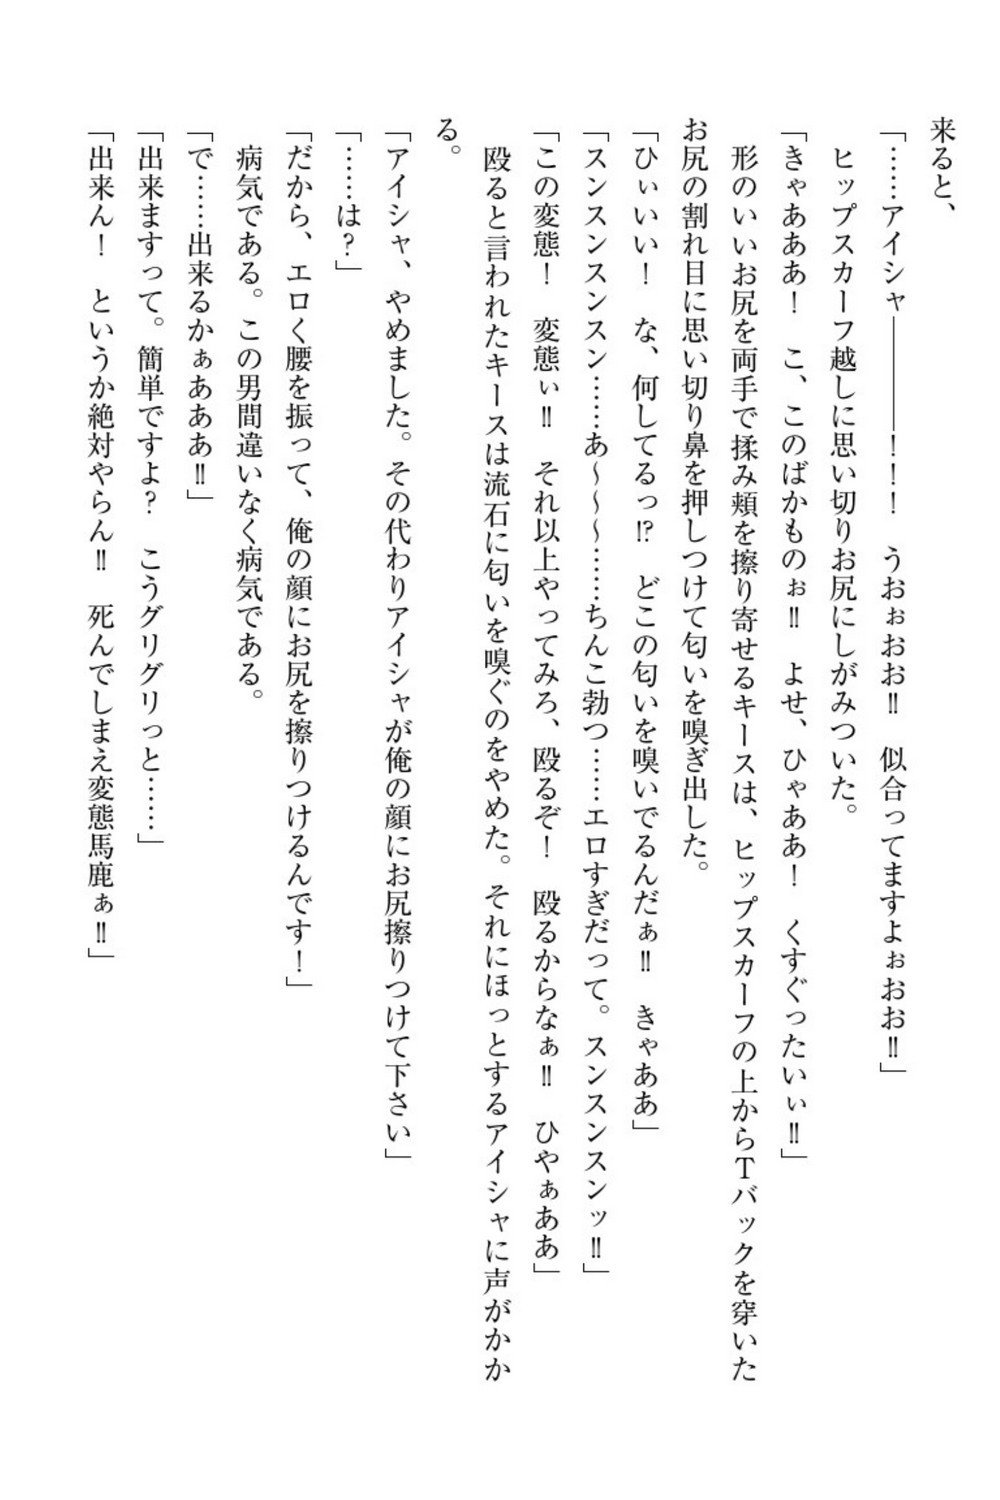 来ると、
「……アイシャ――――！！！　うおぉおお‼　似合ってますよぉおお‼」
ヒップスカーフ越しに思い切りお尻にしがみついた。
「きゃあああ！　こ、このばかものぉ‼　よせ、ひゃああ！　くすぐったいぃ‼」
形のいいお尻を両手で揉み頬を擦り寄せるキースは、ヒップスカーフの上からTバックを穿いた
お尻の割れ目に思い切り鼻を押しつけて匂いを嗅ぎ出した。
「ひぃいい！　な、何してるっ⁉　どこの匂いを嗅いでるんだぁ‼　きゃああ」
「スンスンスンスン……あ～～～……ちんこ勃つ……エロすぎだって。スンスンスンッ‼」
「この変態！　変態ぃ‼　それ以上やってみろ、殴るぞ！　殴るからなぁ‼　ひやぁああ」
殴ると言われたキースは流石に匂いを嗅ぐのをやめた。それにほっとするアイシャに声がかか
る。
「アイシャ、やめました。その代わりアイシャが俺の顔にお尻擦りつけて下さい」
「……は？」
「だから、エロく腰を振って、俺の顔にお尻を擦りつけるんです！」
病気である。この男間違いなく病気である。
「で……出来るかぁあああ‼」
「出来ますって。簡単ですよ？　こうグリグリっと……」
「出来ん！　というか絶対やらん‼　死んでしまえ変態馬鹿ぁ‼」